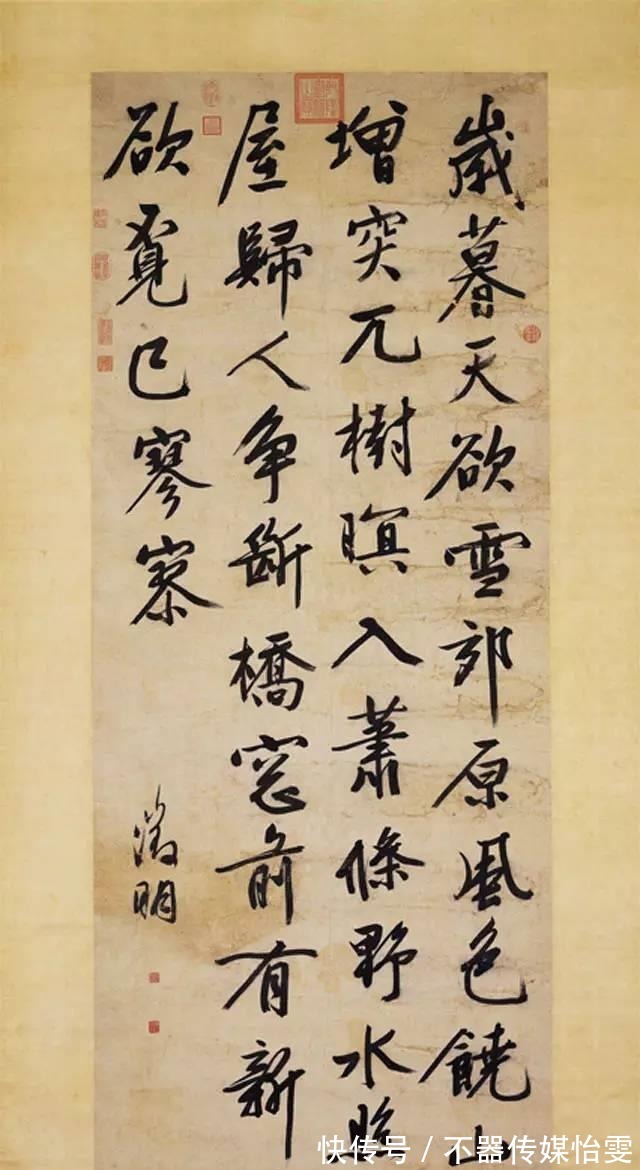 歲暮天欲雪郊原風色饒山
增突兀樹暝入蕭條野水
屋歸人争斷橋窓前有新
欲覓已寥寥
徵明
快传号／不器传媒怡雯